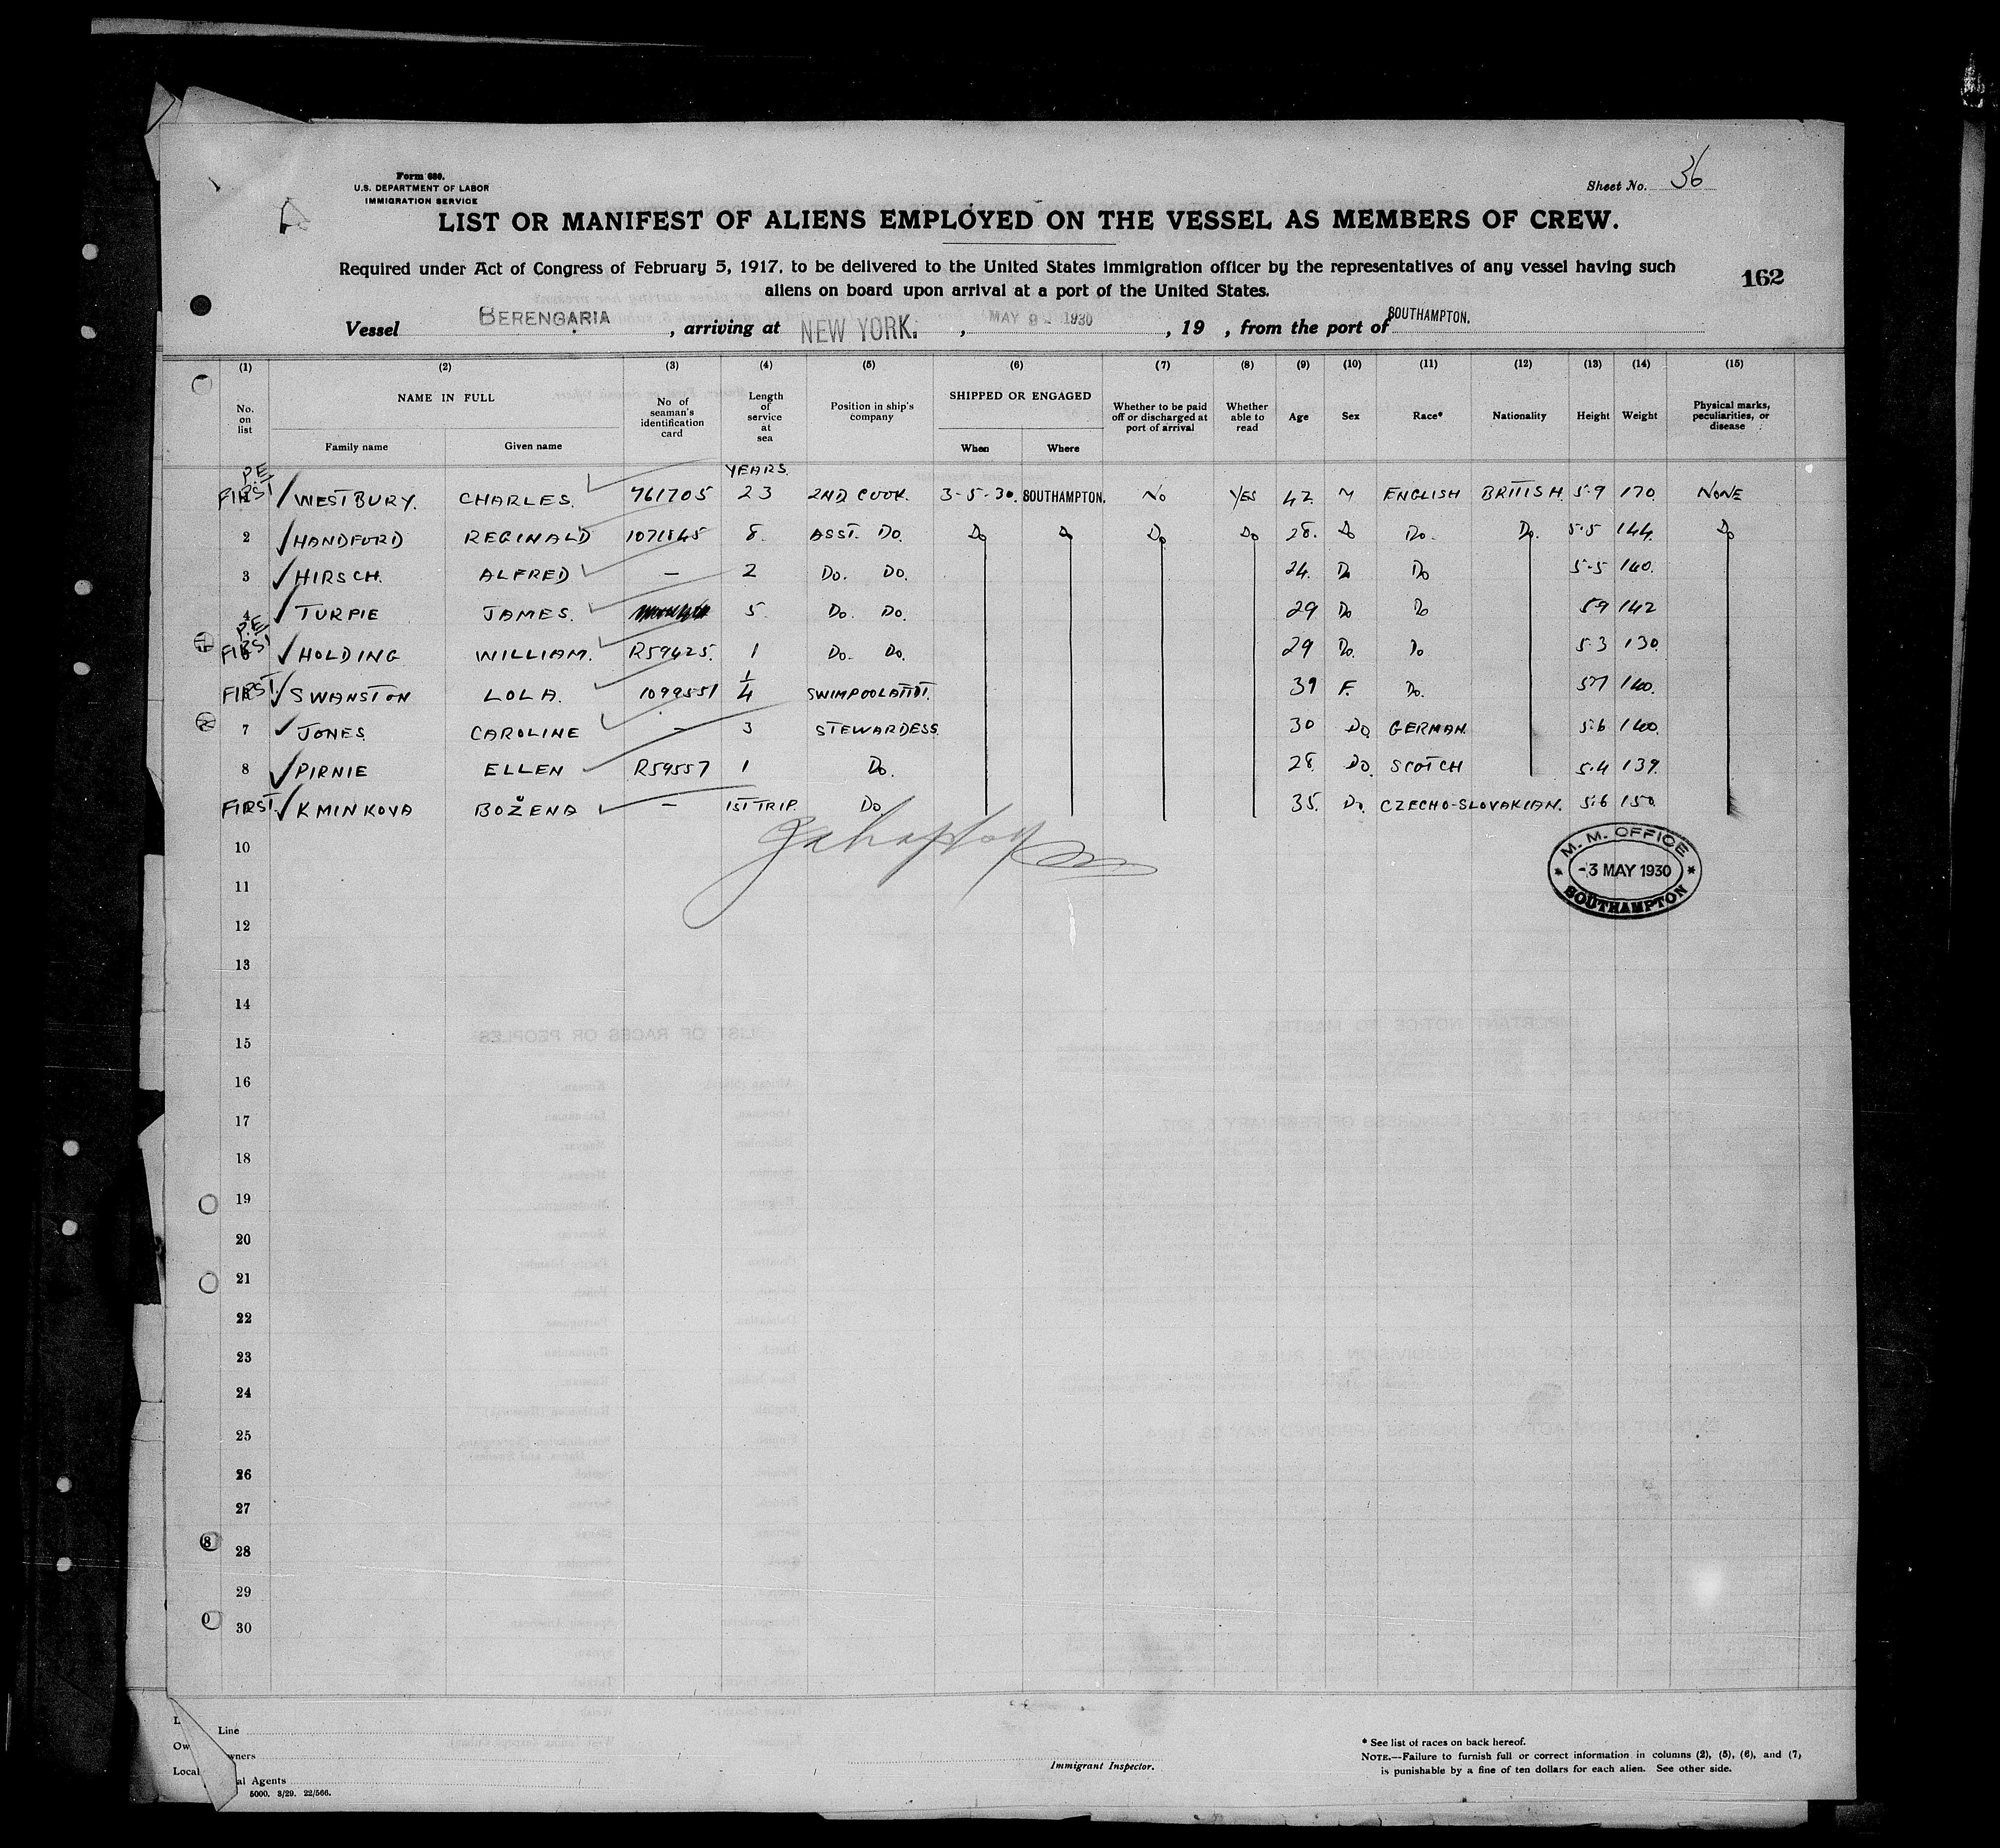 Form 680.
U.S. DEPARTMENT OF LABOR
IMMIGRATION SERVICE
Sheet No. 36
LIST OR MANIFEST OF ALIENS EMPLOYED ON THE VESSEL AS MEMBERS OF CREW.
Required under Act of Congress of February 5, 1917, to be delivered to the United States immigration officer by the representatives of any vessel having such
aliens on board upon arrival at a port of the United States.
162
Vessel BERENGARIA, arriving at NEW YORK., MAY 9 - 1930, 19 , from the port of SOUTHAMPTON.
(1) (2) (3) (4) (5) (6) (7) (8) (9) (10) (11) (12) (13) (14) (15)
No. on list
NAME IN FULL
Family name Given name
No. of seaman's identification card
Length of service at sea
Position in ship's company
SHIPPED OR ENGAGED
When Where
Whether to be paid off or discharged at port of arrival
Whether able to read
Age Sex Race* Nationality Height Weight
Physical marks, peculiarities, or disease
P.E. YEARS.
FIRST WESTBURY. CHARLES. 761705 23 2ND COOK. 3-5-30. SOUTHAMPTON. No YES 42 M ENGLISH BRITISH. 5-9 170. NONE
2 HANDFORD REGINALD 1071845 8. ASST. Do. Do Do Do Do 28. Do Do. Do. 5-5 144. Do
3 HIRSCH. ALFRED — 2 Do. Do. 24. Do Do 5-5 140.
4 TURPIE JAMES. 5. Do. Do. 29 Do Do 5 9 142
P.E.
FIRST HOLDING WILLIAM. R59425. 1 Do. Do. 29 Do. Do 5.3 130.
FIRST. SWANSTON LOLA. 1099551 1/4 SWIMPOOLATTDT. 39 F. Do. 5 7 140.
7 JONES CAROLINE — 3 STEWARDESS. 30 Do GERMAN. 5.6 140.
8 PIRNIE ELLEN R59557 1 Do. 28. Do. SCOTCH 5.4 139.
FIRST. KMINKOVA BOŽENA — 1ST TRIP. Do 35. Do. CZECHO-SLOVAKIAN. 5.6 150.
10
M. M. OFFICE
-3 MAY 1930
SOUTHAMPTON
11
12
13
14
15
16
17
18
19
20
21
22
23
24
25
26
27
28
29
30
Line
Owners
Local Agents
5000. 3/29. 22/566.
Immigrant Inspector.
* See list of races on back hereof.
NOTE.—Failure to furnish full or correct information in columns (2), (5), (6), and (7),
is punishable by a fine of ten dollars for each alien. See other side.